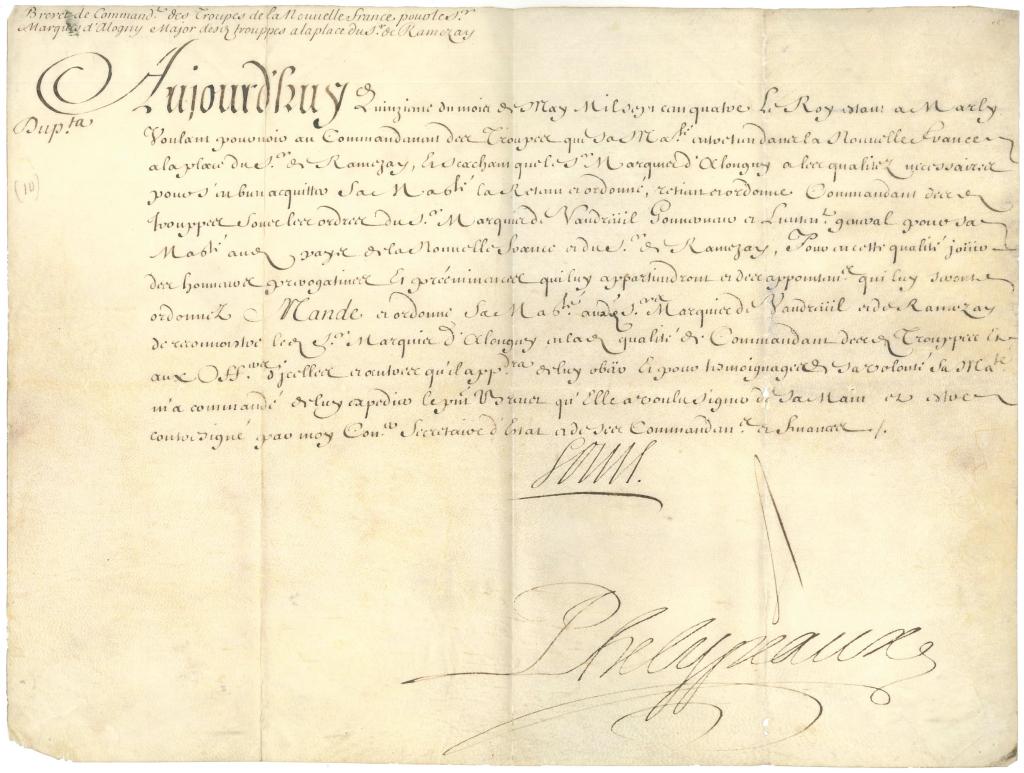 Brevet de Command.t des Troupes de la Nouvelle france pour le S.r
Marquis d'Alogny Major desd. trouppes a la place du S.r de Ramezay
Aujourd'huy Quinzieme du mois de May Mil sept cent quatre Le Roy estant a Marly
Dup.ta
Voulant pourvoir au Commandement des Troupes que Sa Ma.té entretient dans la Nouvelle France
(10)
a la place du S.r de Ramezay, Et sçachant que le S.r Marquis d'Alongny a les qualitez necessaires
pour s'en bien acquitter Sa Ma.té la Retenu et ordonné, retient et ordonne Commandant desd.
trouppes sous les ordres du S.r Marquis de Vaudreüil Gouverneur et Lieuten.t general pour sa
Ma.té aud. pays de la Nouvelle France et du S.r de Ramezay, Pour en cette qualité joüir
des honneurs prerogatives Et prééminences qui luy appartiendront et des appointem.s qui luy seront
ordonnez Mande et ordonne Sa Ma.té ausd. S.rs Marquis de Vaudreüil et de Ramezay
de reconnoistre led. S.r Marquis d'Alongny en lad. qualité de Commandant desd. Trouppes Et
aux Off.ers d'jcelles et autres qu'il app.dra de luy obéir Et pour témoignage de sa volonté Sa Ma.té
m'a commandé de luy expedier le pnt Brevet qu'Elle a voulu signer de sa Main et estre
contresigné par moy Con.er Secretaire d'Estat et de ses Commandem.s et finances ./.
Louis.
Phelypeaux